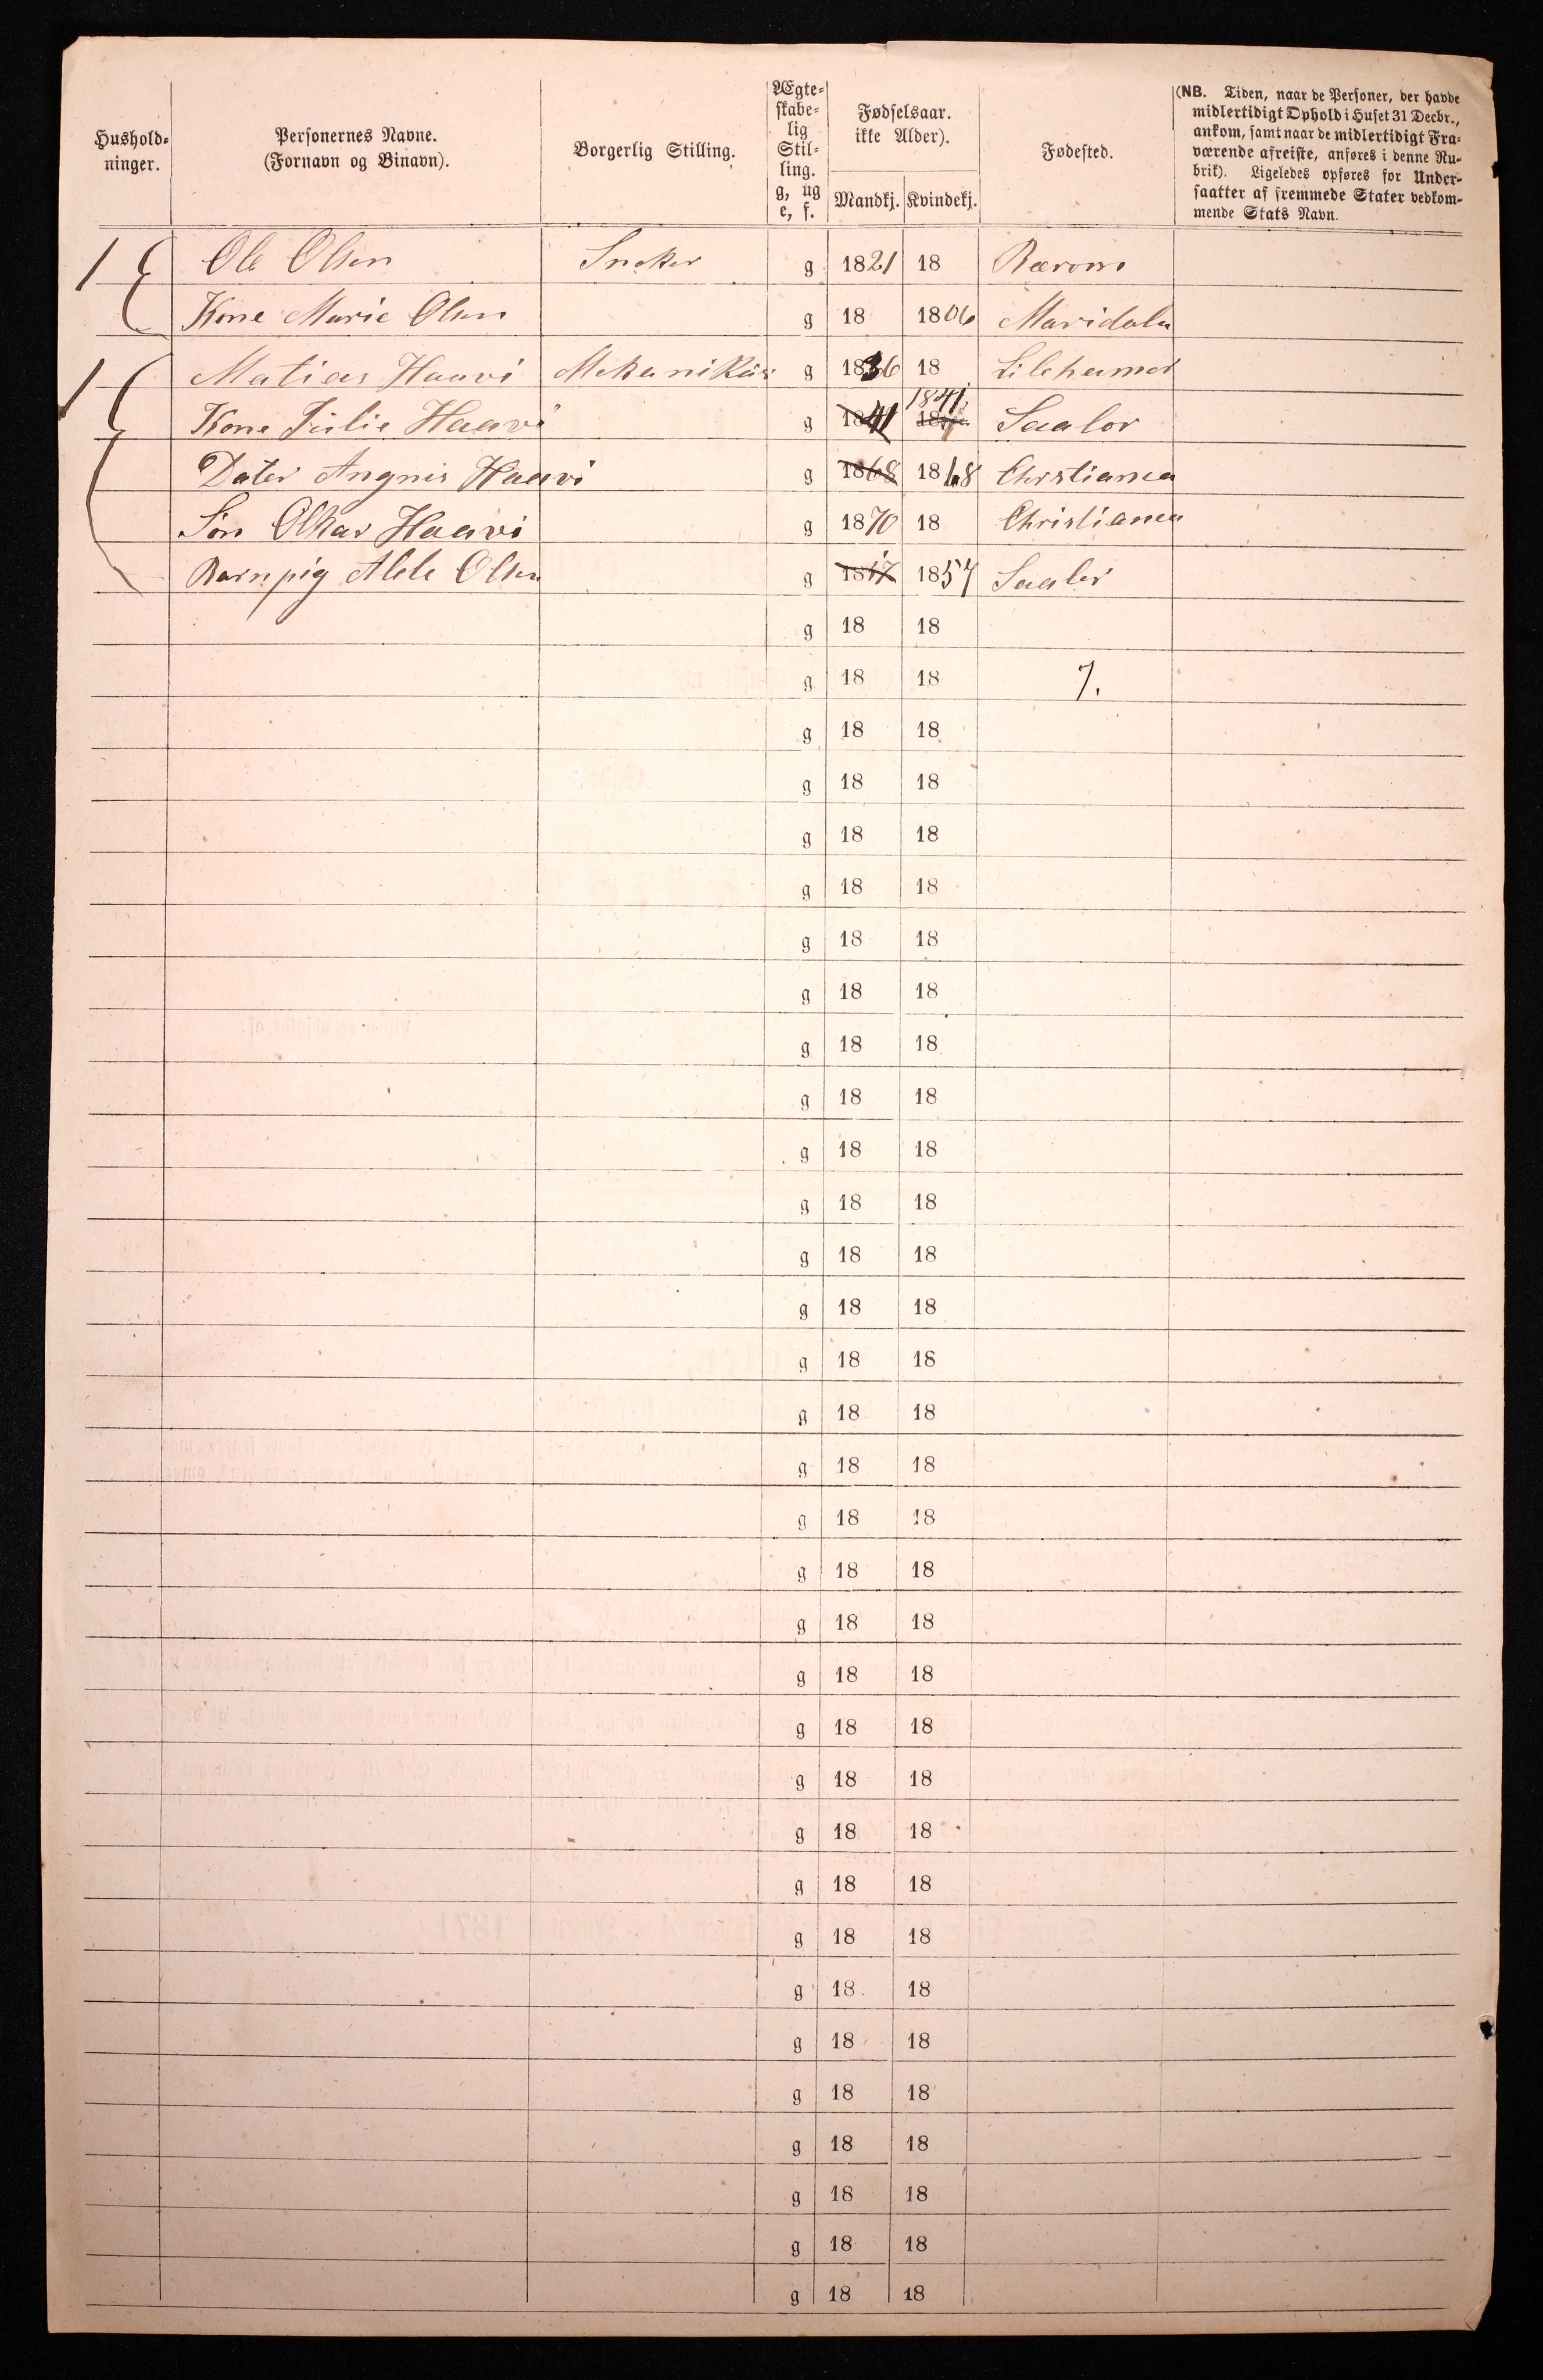 Hushold-
ninger.
Personernes Navne.
(Fornavn og Binavn).
Borgerlig Stilling.
Ægte-
skabe-
lig
Stil-
ling.
g, ug
e, f.
Fødselsaar.
ikke Alder).
Mandkj. Kvindekj.
Fødested.
(NB. Tiden, naar de Personer, der havde
midlertidigt Ophold i Huset 31 Decbr.,
ankom, samt naar de midlertidigt Fra-
værende afreiste, anføres i denne Ru-
brik). Ligeledes opføres for Under-
saatter af fremmede Stater vedkom-
mende Stats Navn.
1 Ole Olsen Sneker g 1821 18 Bærom
Kone Marie Olsen g 18 1806 Maridalen
1 Matias Haavi Mekanikus g 1836 18 Lilehamer
1841
Kone Julie Haavi g 1841 18 Saalør
Dater Angnis Haavi g 1868 1868 Chrstiania
Søn Olkar Haavi g 1870 18 Christiania
Barnpig Alele Olsen g 1817 1857 Saaler
g 18 18
g 18 18 7.
g 18 18
g 18 18
g 18 18
g 18 18
g 18 18
g 18 18
g 18 18
g 18 18
g 18 18
g 18 18
g 18 18
g 18 18
g 18 18
g 18 18
g 18 18
g 18 18
g 18 18
g 18 18
g 18 18
g 18 18
g 18 18
g 18 18
g 18 18
g 18 18
g 18 18
g 18 18
g 18 18
g 18 18
g 18 18
g 18 18
g 18 18